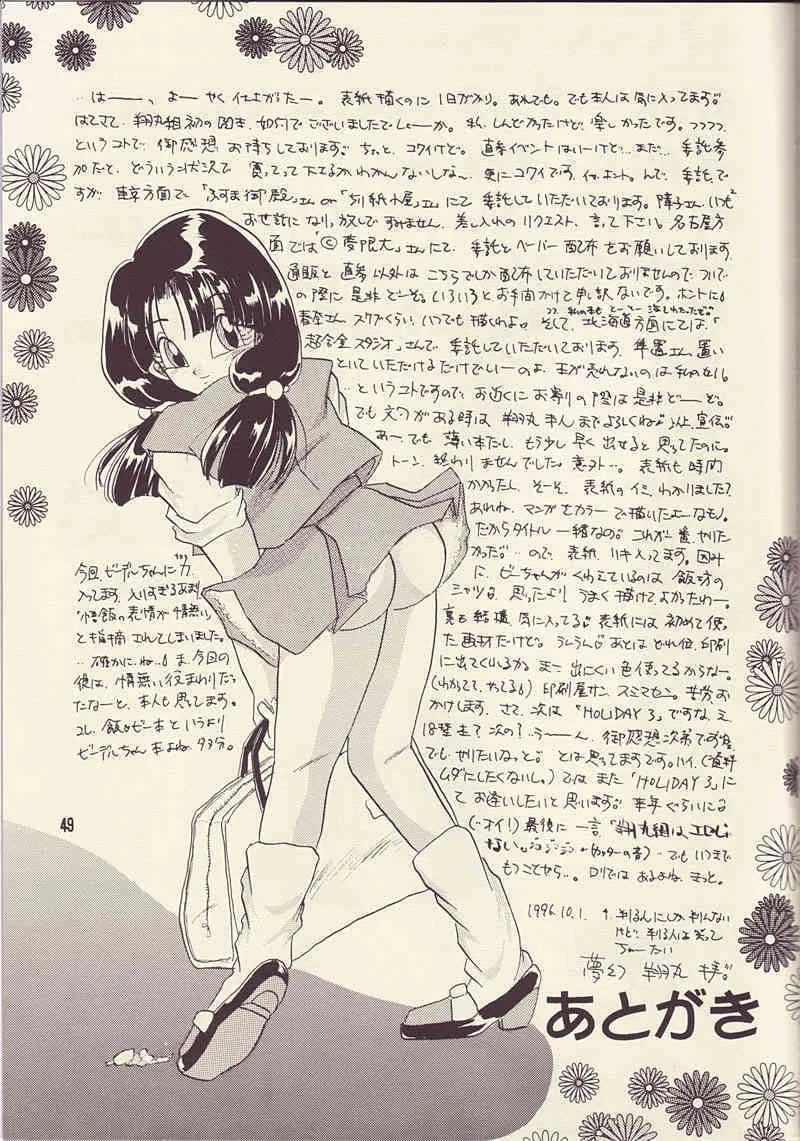 ‥はーーっ、よーやく仕上がったー。表紙描くのに1日がかり。あれでも。でも本人は気に入ってます。
はてさて、翔丸組初の 如何でございましたでしょーか。私、しんどかったけど、楽しかったです。
というコトで、御感想お待ちしております。ちょっと、コワイけど。直参イベントはいーけど‥まだ‥委託参
加だと、どういう状況で買って下さってるかわかんないしな〜。更にコワイです。んで、委託で
すが、東京方面で「ふすま御殿」さん or「折紙小屋」さんにて委託していただいております。障子さん、いつも
お世話になりっ放しですみません。差し入れのリクエスト、言って下さい。名古屋方
面では「©夢限大」さんにて、委託とペーパー配布をお願いしております。
通販と直参以外はこちらでしか配布していただいておりませんので、ついで
の際に是非どーぞ。いろいろとお手間かけて申し訳ないです。ホントに。
さん、スケブくらい、いつでも描くわよ。そして、北海道方面にては、「
超合金スタジオ」さんで委託していただいております。さん、置い
といていただけるだけでいーのよ。本が売れないのは私のせい。
‥というコトですので、お近くにお寄りの際は是非どーぞ。
でも文句がある時は翔丸本人までよろしくね。以上、宣伝。
あー、でも薄い本だし、もう少し早く出せると思ってたのに。
トーン、終わりませんでした。意外‥。表紙も時間
かかったし、そーそ、表紙のイミ、わかりました?
あれね、マンガをカラーで描いたよーなモノ。
だからタイトル一緒なの。これが一番、やりた
かった。‥ので、表紙、気に入ってます。因み
に、ビーちゃんがくわえているのは飯坊の
シャツね。思ったよりうまく描けて、よかったわー。
裏も結構、気に入ってる。表紙には初めて使っ
た画材だけど。あとはどれ位、印刷
に出てくれるか。まー出にくい色使ってるからなー。
(わかってて、やってる)印刷屋サン、スミマセン。苦労お
かけします。さて、次は「HOLIDAY 3」ですな。え、
18禁まで?次の?うーーん、御感想次第ですな。
でも、やりたいなっと。とは思ってますです。ハイ。(資料
ムダにしたくないし。)では、また「HOLIDAY 3」に
てお逢いしたいと思います。来年ぐらいに。
(‥オイ!)最後に一言「翔丸組は、ロリじゃ
ない。」ジジジ←(カッターの音)‥でもいつまで
もつことやら‥。ロリではあるよね、きっと。
1996.10.1.
↑判る人にしか判んない
けど、判る人は笑って
ちょーだい
夢幻 翔丸
今回、ビーデルちゃんに力
入ってます。入りすぎるあまり
「悟飯の表情が情無い」
と指摘されてしまいました。
‥確かに、ね。ま、今回の
彼は、情無い役まわりだっ
たなーと、本人も思ってます。
コレ、飯×ビー本というより
ビーデルちゃん本よね、9割分。
49
あとがき